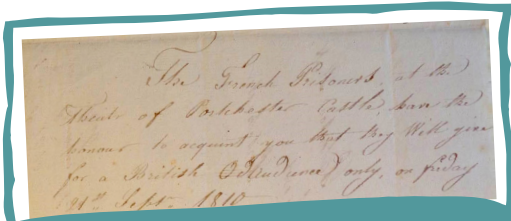 The French Prisoners, at the
Theatre of Portchester Castle, have the
honour to acquaint you that they Will give
for a British Audience only, on friday
21st Sept. 1810